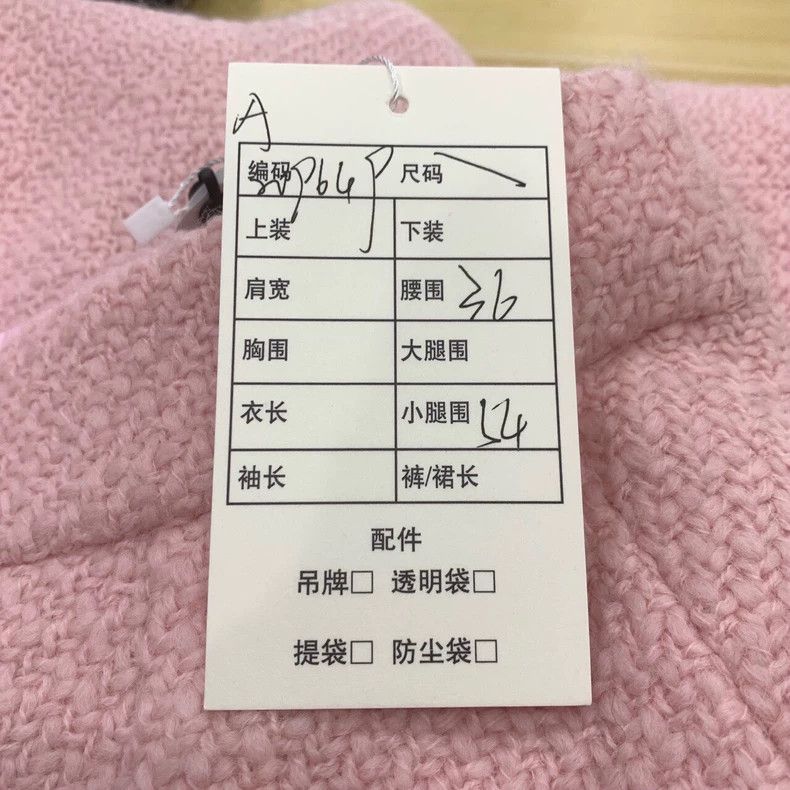 A
编码 尺码
上装 下装
肩宽 腰围 36
胸围 大腿围
衣长 小腿围 54
袖长 裤/裙长
配件
吊牌□ 透明袋□
提袋□ 防尘袋□